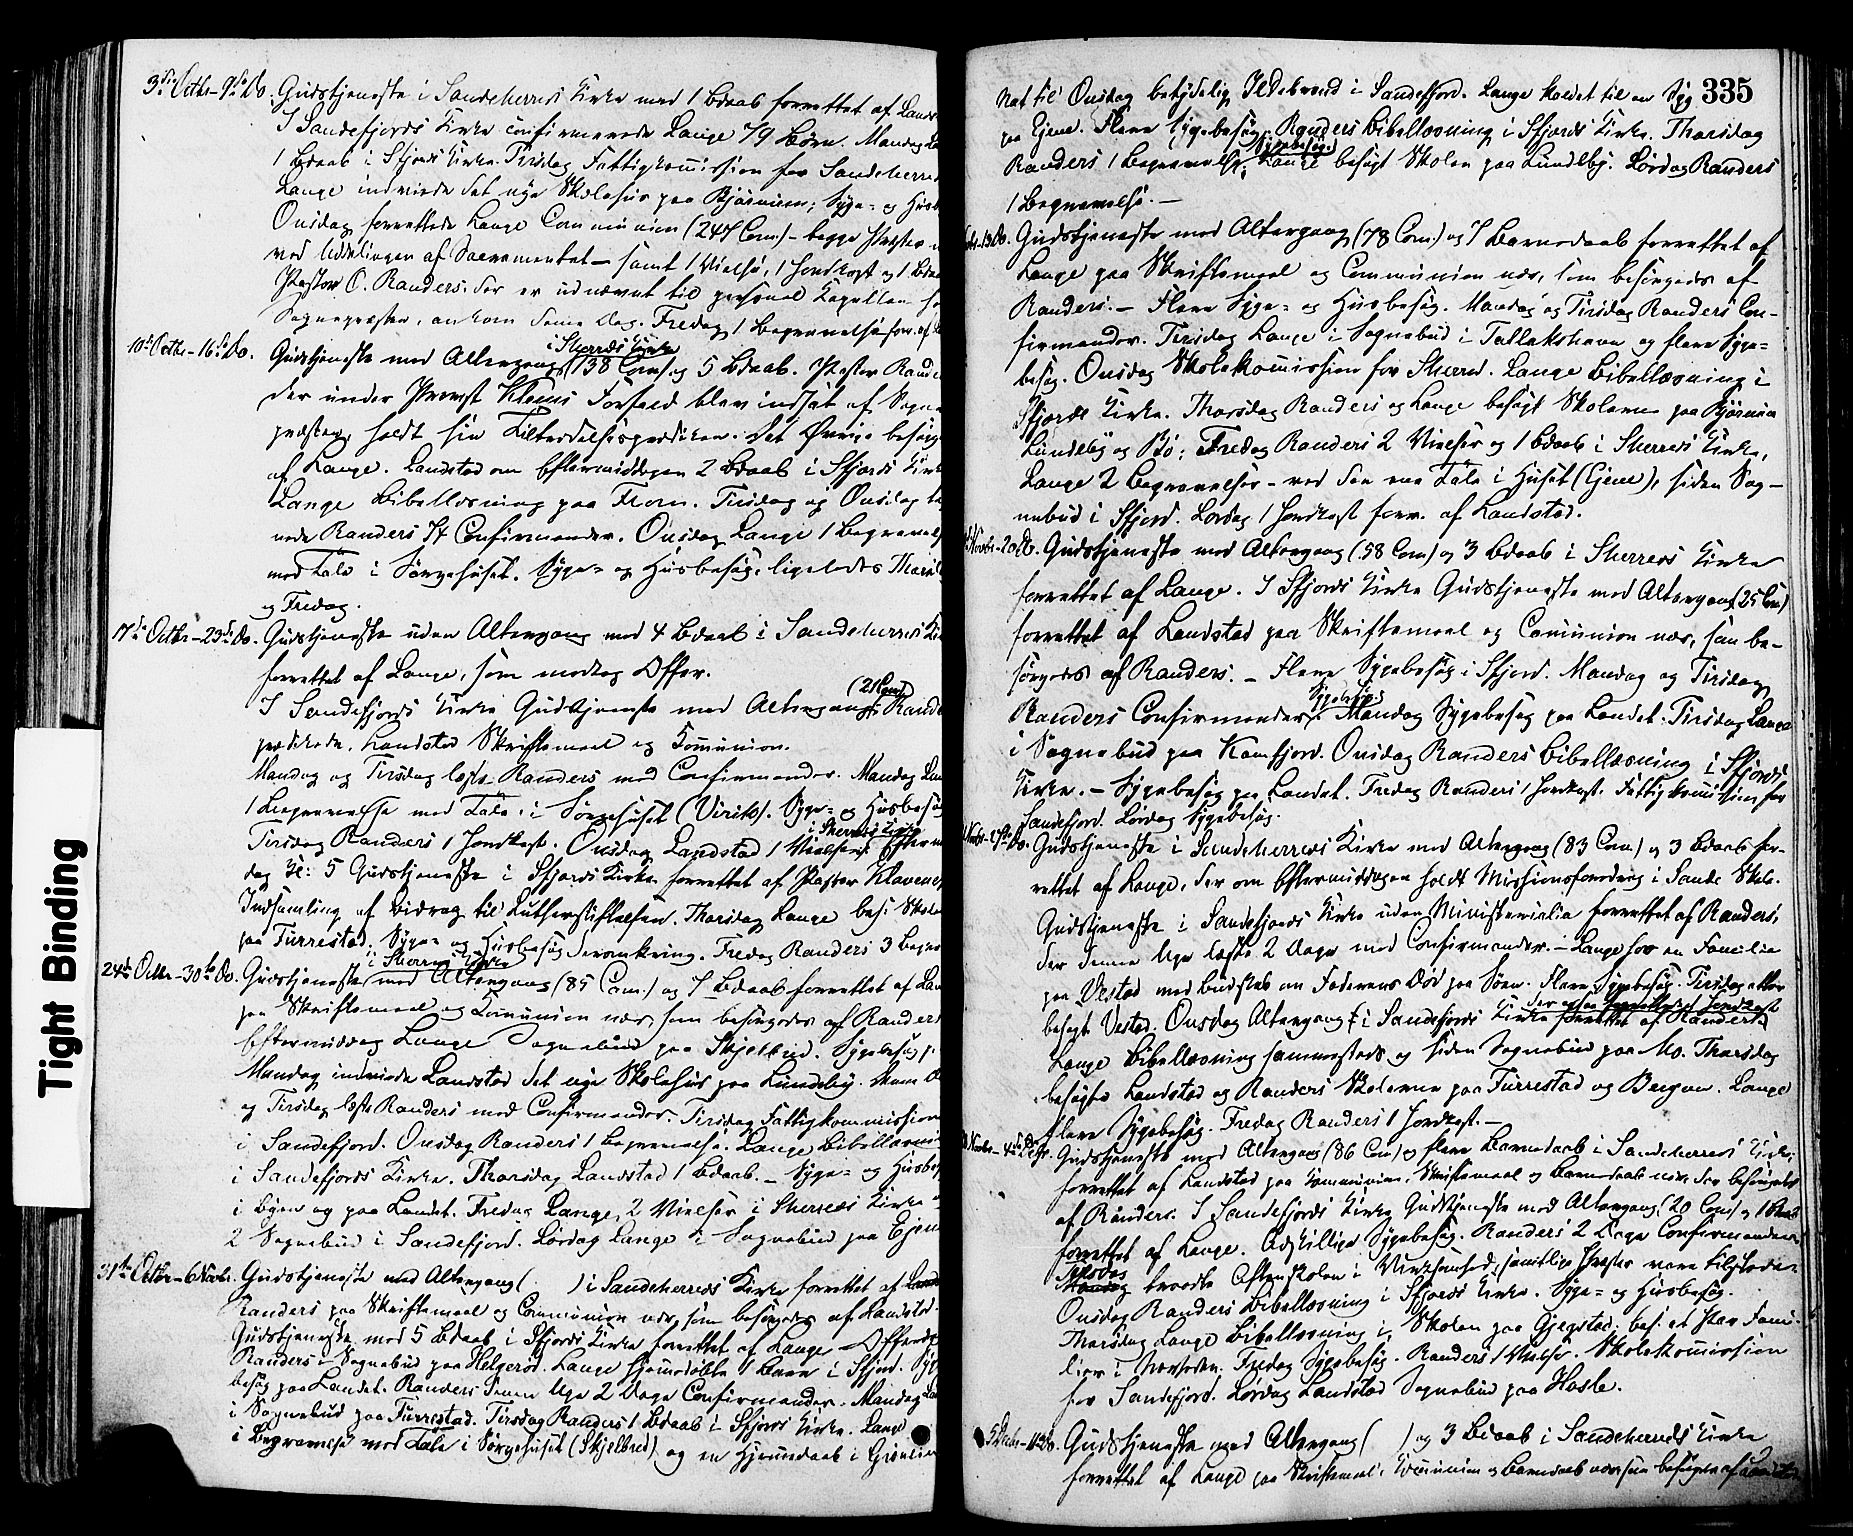 3die Octbr – 9de Do. Gudstjeneste i Sandeherreds Kirke med 1 bdaab forrettet af Lands
I Sandefjords Kirke confirmerede Lange 79 Børn. Mandag La
1 bdaab i Sfjords Kirke. Tirsdag Fattigkommission for Sandeherred
Lange indviede det nye Skolehus paa Bjørnum; Syge- og Husb
Onsdag forrettede Lange Communion (247 Com.) – begge Præster
ved Uddelingen af Sacramentet – samt 1 Vielse, 1 Jordkast og 1 bdaa
Pastor O. Randers, der er udnævnt til personel Kapellan h
Sognepræsten, ankom denne Dag. Fredag 1 Begravelse forr. af L
10de Octbr – 16de Do. i Sherreds Kirke
Gudstjeneste med Altergang (138 Com) og 5 bdaab. Pastor Rande
der under Provst Klems Forfald blev indsat af Sogne
præsten, holdt sin Tiltrædelsesprædiken. Det Øvrige besørg
af Lange. Landstad om Eftermiddagen 2 bdaab i Sfjords Kirk
Lange Bibellæsning paa Fevn. Tirsdag og Onsdag be
Randers 74 Confirmander. Onsdag Lange 1 Begravels
med Tale i Sørgehuset. Syge- og Husbesøg, ligeledes Thorsda
og Fredag.
17de Octbr – 23de Do. Gudstjeneste uden Altergang med 4 bdaab i Sandeherreds Kir
forrettet af Lange, som modtog Offer.
(21 Com)
I Sandefjords Kirke Gudstjeneste med Altergang. Rande
prædikede, Landstad Skriftemaal og Kommunion.
Mandag og Tirsdag læste Randers med Confirmander. Mandag Lan
1 Begravelse med Tale i Sørgehuset (Virik). Syge- og Husbesøg
i Sherreds Kirke
Tirsdag Randers 1 Jordkast. Onsdag Landstad 1 Vielse. Efterm
dag Kl: 5 Gudstjeneste i Sfjords Kirke forrettet af Pastor Klavenes
Indsamling af Bidrag til Lutherstiftelsen. Thorsdag Lange bes. Skole
paa Furrestad. Syge- og Husbesøg deromkring. Fredag Randers 3 Begra
i Sherreds Kirke
24de Octbr – 30te Do. Gudstjeneste med Altergang (85 Com.) og 7 bdaab forrettet af Lan
paa Skriftemaal og Communion nær, som besørgedes af Randers
Eftermiddag Lange Sognebud paa Skjelbred. Sygebesøg
Mandag indviede Landstad det nye Skolehus paa Lundeby.
og Tirsdag læste Randers med Confirmander. Tirsdag Fattigkommission
i Sandefjord. Onsdag Randers 1 Begravelse. Lange Bibellæsni
i Sandefjords Kirke. Thorsdag Landstad 1 bdaab. – Syge- og Husbes
i Byen og paa Landet. Fredag Lange 2 Vielser i Sherreds Kirke
2 Sognebud i Sandefjord. Lørdag Lange i Sognebud paa Gjen
31te Octbr – 6 Novbr. Gudstjeneste med Altergang ( ) i Sandeherreds Kirke forrettet af
Randers paa Skriftemaal og Communion nær, som besørgedes af Landstad.
Gudstjeneste med 5 bdaab i Sfjords Kirke forrettet af Lange.
Randers i Sognebud paa Helgerød. Lange hjemmedøbte 1 Barn i Sfjord. Syge
besøg paa Landet. Randers denne Uge 2 Dage Confirmander. Mandag La
i Sognebud paa Furrestad. Tirsdag Randers 1 bdaab i Sfjords Kirke. Lange
i Begravelse med Tale i Sørgehuset (Skjelbred) og en Hjemmedaab i
335
Nat til Onsdag betydelig Ildebrand i Sandefjord. Lange kaldet til en Syg
paa Gjene. Flere Sygebesøg. Randers Bibellæsning i Sfjords Kirke. Thorsdag
Sygebesøg
Randers 1 Begravelse; Lange besøgt Skolen paa Lundeby. Lørdag Randers
1 Begravelse. –
13 Do. Gudstjeneste med Altergang (78 Com.) og 7 Barnedaab forrettet af
Lange paa Skriftemaal og Communion nær, som besørgedes af
Randers. – Flere Syge- og Husbesøg. Mandag og Tirsdag Randers Con-
firmander. Tirsdag Lange i Sognebud i Tallakshavn og flere Syge-
besøg. Onsdag Skolekommission for Sherred. Lange Bibellæsning i
Sfjords Kirke. Thorsdag Randers og Lange besøgt Skolerne paa Bjørnum
Lundeby og Bø; Fredag Randers 2 Vielser og 1 bdaab i Sherreds Kirke,
Lange 2 Begravelser – ved den ene Tale i Huset (Gjene), siden Sog-
nebud i Sfjord. Lørdag 1 Jordkast forr. af Landstad.
Novbr – 20 Do. Gudstjeneste med Altergang (58 Com) og 3 bdaab i Sherreds Kirke
forrettet af Lange. I Sfjords Kirke Gudstjeneste med Altergang (25 Com)
forrettet af Landstad paa Skriftemaal og Communion nær, som be-
sørgedes af Randers. – Flere Sygebesøg i Sfjord. Mandag og Tirsdag
Sygebesøg
Randers Confirmander. Mandag Sygebesøg paa Landet. Tirsdag Lange
i Sognebud paa Kamfjord. Onsdag Randers Bibellæsning i Sfjords
Kirke. – Sygebesøg paa Landet. Fredag Randers 1 Jordkast. Fattigkommission for
Sandefjord. Lørdag Sygebesøg.
Novbr – 27de Do. Gudstjeneste i Sandeherreds Kirke med Altergang (83 Com.) og 3 bdaab for-
rettet af Lange, der om Eftermiddagen holdt Missionsforedrag i Sande Skole.
Gudstjeneste i Sandefjords Kirke uden Ministerialia forrettet af Randers,
der denne Uge læste 2 Dage med Confirmander. – Lange hos en Familie
paa Vestad med Budskab om Faderens Død paa Søen. Flere Sygebesøg. Tirsdag atter
besøgt Vestad. Onsdag Altergang i Sandefjords Kirke forrettet af Randers
Lange Bibellæsning sammesteds og siden Sognebud paa Mo. Thorsdag
besøgte Landstad og Randers Skolerne paa Furrestad og Bergan. Lange
flere Sygebesøg. Fredag Randers 1 Jordkast. –
Novbr – 4de Decbr. Gudstjeneste med Altergang (86 Com) og flere Barnedaab i Sandeherreds Kirke,
forrettet af Landstad paa Communion, Skriftemaal og Barnedaab nær, der besørgedes
af Randers. I Sandefjords Kirke Gudstjeneste med Altergang (20 Com) og 1
forrettet af Lange. Adskillige Sygebesøg. Randers 2 Dage Confirmander
traadte Aftenskolen i Virksomhed, samtlige Præster vare tilstede.
Onsdag Randers Bibellæsning i Sfjords Kirke. Syge- og Husbesøg.
Thorsdag Lange Bibellæsning i Skolen paa Gjegstad, bes. et Par Fami-
lier i Nærheden. Fredag Sygebesøg. Randers 1 Vielse. Skolekommission
for Sandefjord. Lørdag Landstad Sognebud paa Hasle.
5 Decbr – 11 Do. Gudstjeneste med Altergang ( ) og 3 bdaab i Sandeherreds Kirke
forrettet af Lange paa Skriftemaal, Communion og Barnedaab nær, som besørgedes af
Tight Binding